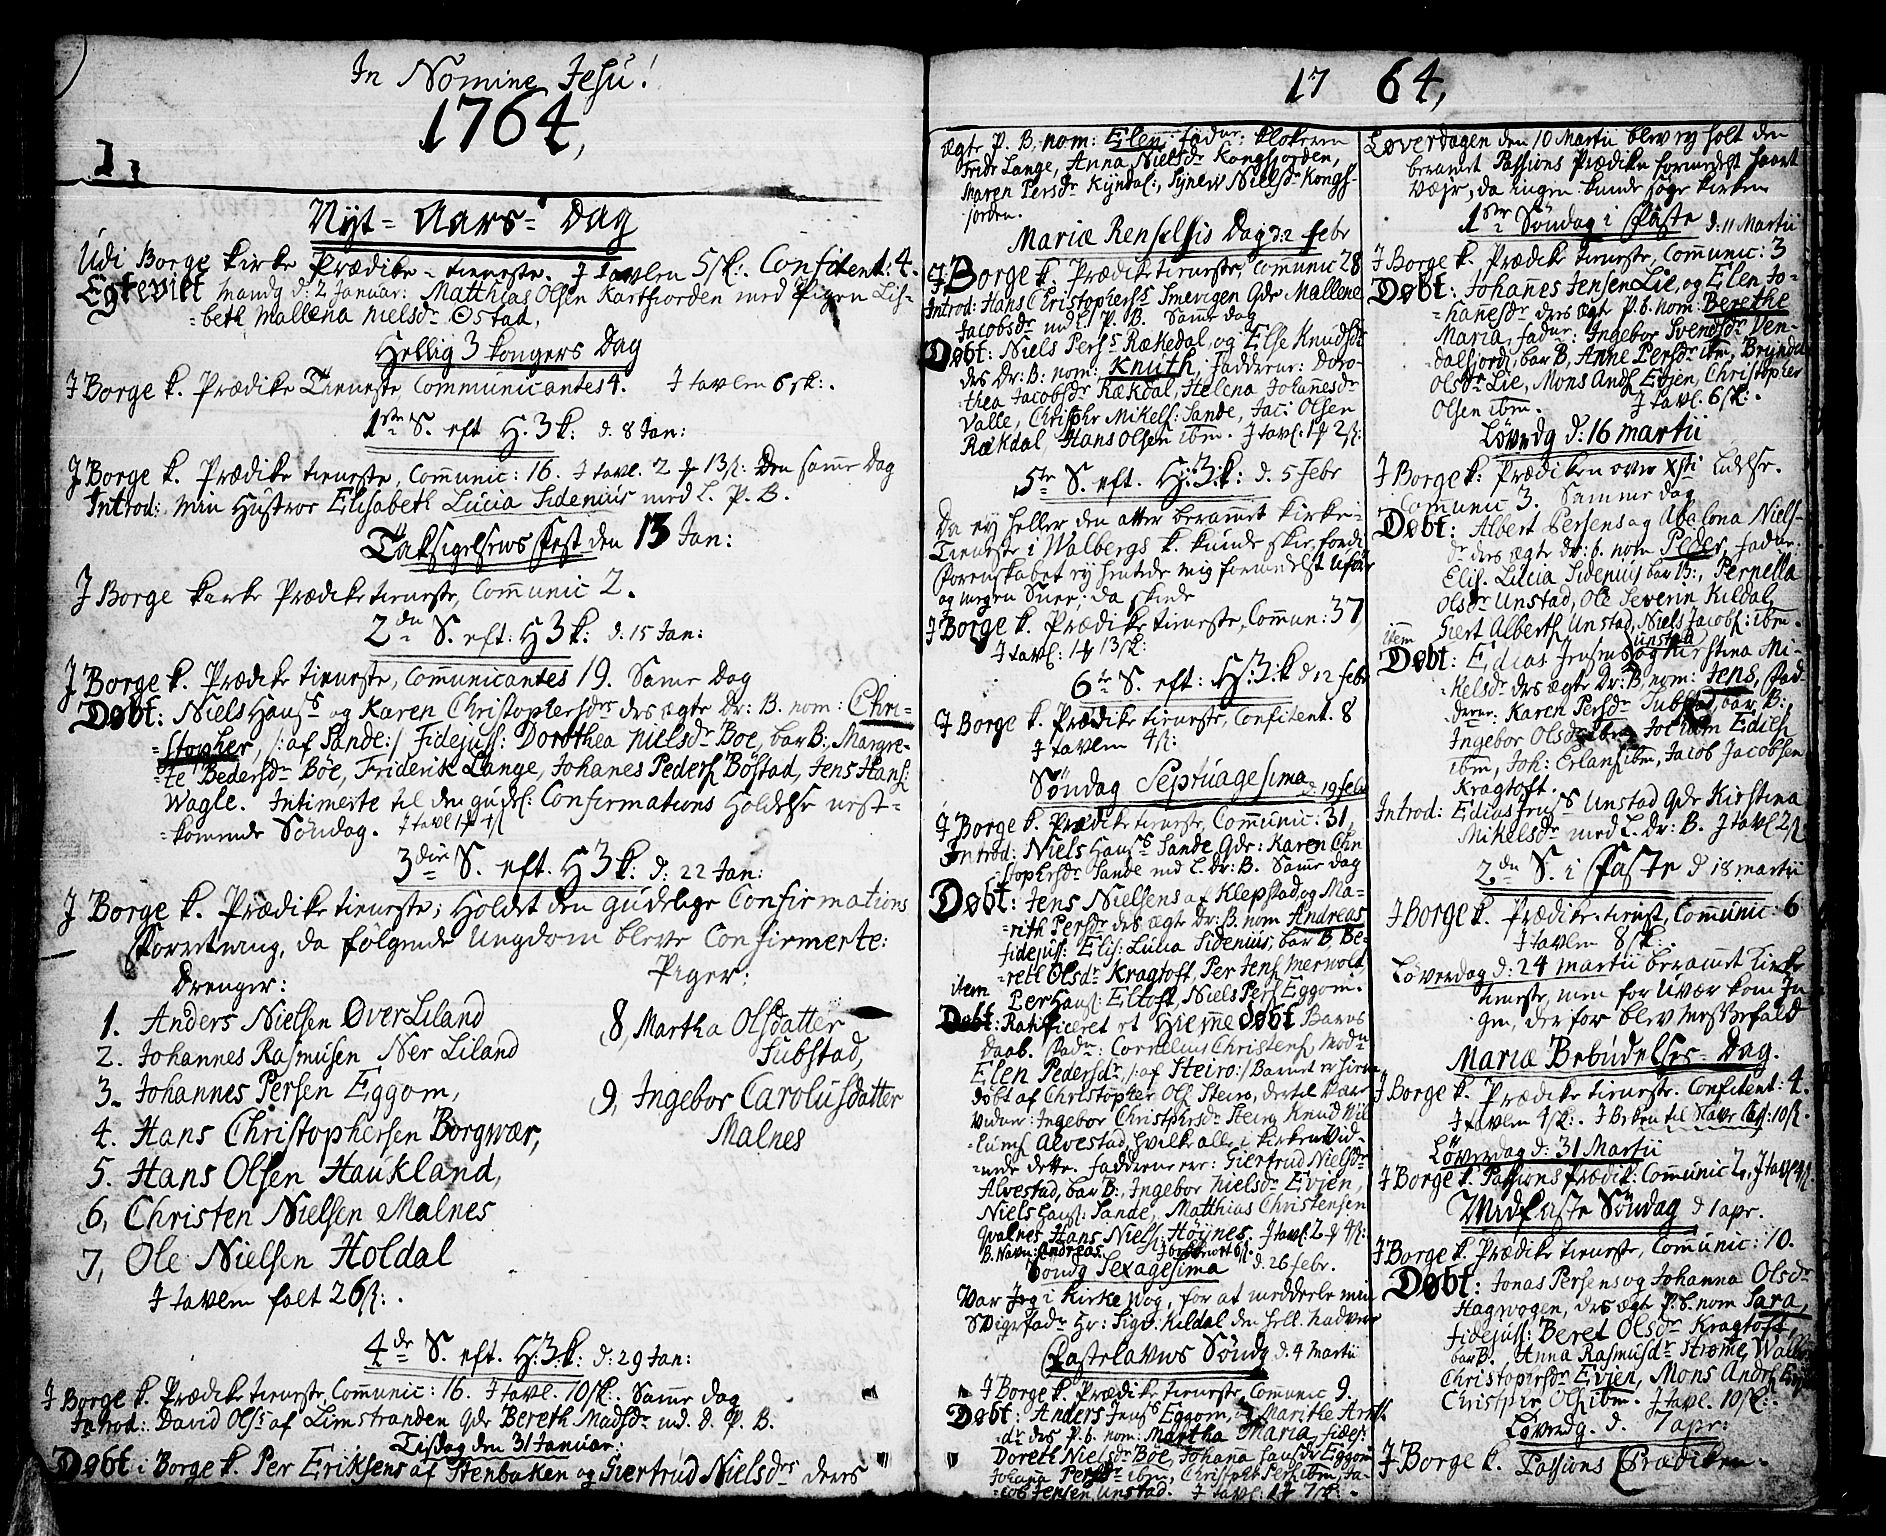 In Nomine Jesu!
1764,
1,
Nyt-Aars-Dag
Udi Borge kirke Prædike-tieneste. J tavlen 5 sk: Confitent: 4.
Egteviet mandg d: 2 Januar: Matthias Olsen Kartfiorden med Pigen Lis-
=beth Mallena Nielsdr Østad,
Hellig 3 Kongers Dag
J Borge k. Prædike Tieneste Communicantes 4. J tavlen 6 sk:.
1ste S. eft H. 3 k: d. 8 Jan:
J Borge k. Prædike tieneste, Comunic: 16. J tavl. 2 # 13 sk: Den same Dag
Introd: min Hustroe Elisabeth Lucia Sidenius med L. P. B.
Taksigelsens Fest den 13 Jan:
J Borge kirke Prædike tieneste, Comunic 2.
2den S. eft: H 3 k: d. 15 Jan:
J Borge k. Prædike tieneste, Comunicantes 19. Same Dag
Døbt: Niels Hanss og Karen Christophersdrs des ægte Dr: B. nom: Chri-
=stopher, /: af Sande:/ Fidejuss: Dorothea Nielsdr Boe, bar B:, Margre-
=te Pedersdr Böe, Friderik Lange, Johanes Peders Böstad, Jens Hans:
Wagle. Intimerte til den gudel: Confirmations Holdelse nest-
=komende Søndag. J tavl 1 # 4 sk
3die S. eft. H 3 k: d: 22 Jan:
J Borge k. Prædike tieneste; Holdet den gudelige Confirmations
Forretning, da følgende Ungdom bleve Confirmerte:
Drenger:
Piger:
1. Anders Nielsen Øver Liland
2. Johannes Rasmusen Ner Liland
3. Johannes Persen Eggom,
4. Hans Christophersen Borgwær,
5. Hans Olsen Haukland,
6, Christen Nielsen Malnes
7, Ole Nielsen Holdal
8, Martha Olsdatter
Substad,
9, Ingebor Carolusdatter
Malnes
J tavlen falt 26 sk:.
4de S. eft. H: 3 k: d: 29 Jan:
J Borge k. Prædike tieneste, Comunic: 16. J tavl. 10 sk:. Same dag
Introd: David Olss af Limstranden Qde Bereth Madsdr md. d. P. B.
Tisdag den 31 Januar:
Døbt i Borge k. Per Eriksens af Stenbaken og Giertrud Nielsdrs deres
17 64,
ægte P. B. nom: Elen, fadur: klokeren
Fridr Lange, Anna Nielsdr Kongsjorden,
Maren Persdr Kyndal:, Synew Nielsdr Kongs-
jorden.
Mariæ Renselsis Dag d: 2 febr
J Borge k. Prædike tieneste, Comunic 28
Introd: Hans Christophers Smevigen Qde Mallene
Jacobsdr md L. P. B. Same dag
Døbt: Niels Perss Rækedal, og Else Knudsdr
des Dr: B: nom: Knuth, fadderne: Doro-
thea Jacobsdr Rækdal, Helena Johanesdr
Valle, Christphr Mikels: Sande, Jac: Olsen
Rækdal Hans Olsen ibm. J tavl: 1 # 2 sk:
5te S. eft. H: 3. k: d. 5 Febr
Da ey heller den atter berammet kirke-
Tieneste i Walbergs k. kunde skee, fordi
Forenskabet ey hentede mig formedelst Uføre
og megen Snee; da skede
J Borge k. Prædike tieneste, Commun: 37,
J tavl: 1 # 13 sk:
6te S. eft: H. 3. k d 12 febr
J Borge k. Prædike tieneste, Confitent. 8
J tavlen 4 sk:
Søndag Septuagesima d 19 febr
J Borge k. Prædike tieneste, Comunic: 31,
Introd: Niels Hanss Sande Qde: Karen Chri
stophersdr Sande md L. Dr: B. Same dag
Døbt: Jens Nielsens af Klepstad og Ma-
=rith Persdr des ægte Dr: B. nom Andreas
fidejuss: Elis: Lucia Sidenius, bar B, Be-
=reth Olsdr Kragtoft Per Jens Merwold
Per Hans: Eltoft, Niels Pers Eggom.
item
Døbt: Ratificeret et Hieme døbt Barns
Daab. Fadr: Cornelius Christens Modr
Elen Pedersdr, /: af Steiro:/ Barnet er hieme
døbt af Christopher Ols Steiro, dertil var
vidner: Ingebor Christphersdr Steiro Knud Wil
=lums Alvestad, hvilke alle i kirken vid-
=nede dette. fadderne ere: Giertrud Nielsdr
Alvestad, bar B:, Ingebor Nielsdr Evjen,
Niels Hans: Sande, Matthias Christensen
Qvalnes Hans Niels: Höynes. J tavl: 2 # 4 sk:
B. Navn: Andreas
Söndg Sexagesima d. 26 febr.
Var Jeg i Kirke Vog, for at meddele min
Svigrfadr Hr: Sigv: Kildal den hell. nadvere
Fastelavns Søndg d. 4 Martii
J Borge k. Prædike tieneste, Comunic 9.
Døbt: Anders Jens Eggom, og Marithe Arnts
dr des P. b. nom: Martha Maria, fidejs:
Doreth Nielsdr Böe, Johana Hansdr Eggom
Johana Persdr ibm, Christphr Pers ibm, Ja-
=cob Jensen Unstad. J tavl: 1 # 7 sk:.
Løverdagen den 10 Martii blev ey holt den
beramet Passions Prædike formedelst haart
Vejr, da ingen kunde søge kirken
1ste Søndag i Faste d: 11 Martii
J Borge k. Prædike tieneste, Communic: 3
Døbt: Johanes Jensen Lie, og Elen Jo-
=hanesdr ders ægte P: b. nom: Berethe
Maria, fadur: Ingebor Svendsdr Ven-
dalsjord, bar B, Anne Persdr ibm, Bryndel
Olsdr Lie, Mons Ands Evjen, Christopher
Olsen ibm. J tavl. 6 sk:.
Løverdg d: 16 martii
J Borge k: Prædiken over Xsti Lidelse.
Comunic 3. Samme dag
Døbt: Albert Persens og Abalona Niels-
dr des ægte Dr: b. nom Peder, fadur:
Elis. Lucia Sidenius bar B:, Pernella
Olsdr Unstad, Ole Severin Kildal,
Giert Alberts Unstad, Niels Jacobs: ibm.
item
Døbt: Edias Jensens Unstad og Kirstina Mi-
kelsdr des ægte Dr: B, nom: Jens, Fad-
derne: Karen Persdr Substad, bar B:
Ingebor Olsdr ibm, Jochum Edies
ibm, Joh: Erlans ibm, Jacob Jacobsen
Kragtoft.
Introd: Edias Jenss Unstad Qde Kirstina
Mikelsdr med L. Dr: B. J tavl 2 sk:
2den S. i Faste d 18 martii
J Borge k. Prædike-tienest, Comunic: 6
J tavlen 8 sk:.
Løverdag d: 24 martii beramet Kirke
tieneste, men for Uvær kom In-
gen, derfor blev Messefald
Mariæ Bebudelses-Dag.
J Borge k. Prædike tieneste. Confitent: 4.
J tavlen 4 sk:. J Beken til Slave Cas: 10 sk:.
Löverdag d: 31 Martii
J Borge k. Passions Prædik: Comunic 2, J tavl 4 sk:
Midfaste Søndag d 1 apr.
J Borge k. Prædike tieneste, Comunic: 10.
Døbt: Jonas Persens og Johanna Olsdr
Hagwogen, des ægte P. b. nom Sara,
fidejuss: Beret Olsdr Kragtoft
bar B. Anna Rasmusdr Strøme,
Christophersdr Evjen, Mons Ands Evjen
Christpher Ols ibm. J tavl. 10 sk:.
Løverdg. d. 7 apr:
J Borge k. Passions Prædiken.